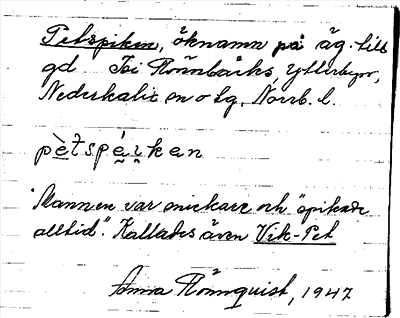 Petspiken, öknamn på äg. till
gd Rönnbäcks, Ytterbyn,
Nederkalix en o sg, Norrb. l.
pètspé̱i̱ken
"Mannen var snickare och "spikade
alltid". Kallades även Vik-Pet
Anna Rönnquist, 1947